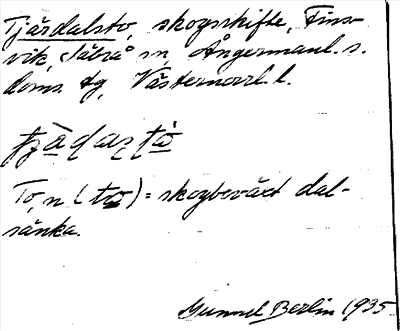 Tjärdalsto, skogsskifte, Fins-
vik, Säbrå sn, Ångermanl. s.
doms. tg, Västernorrl. l.
tjä̀da​ʂtó
To, n (tω) = skogbeväxt dal-
sänka.
Gunnel Berlin 1935